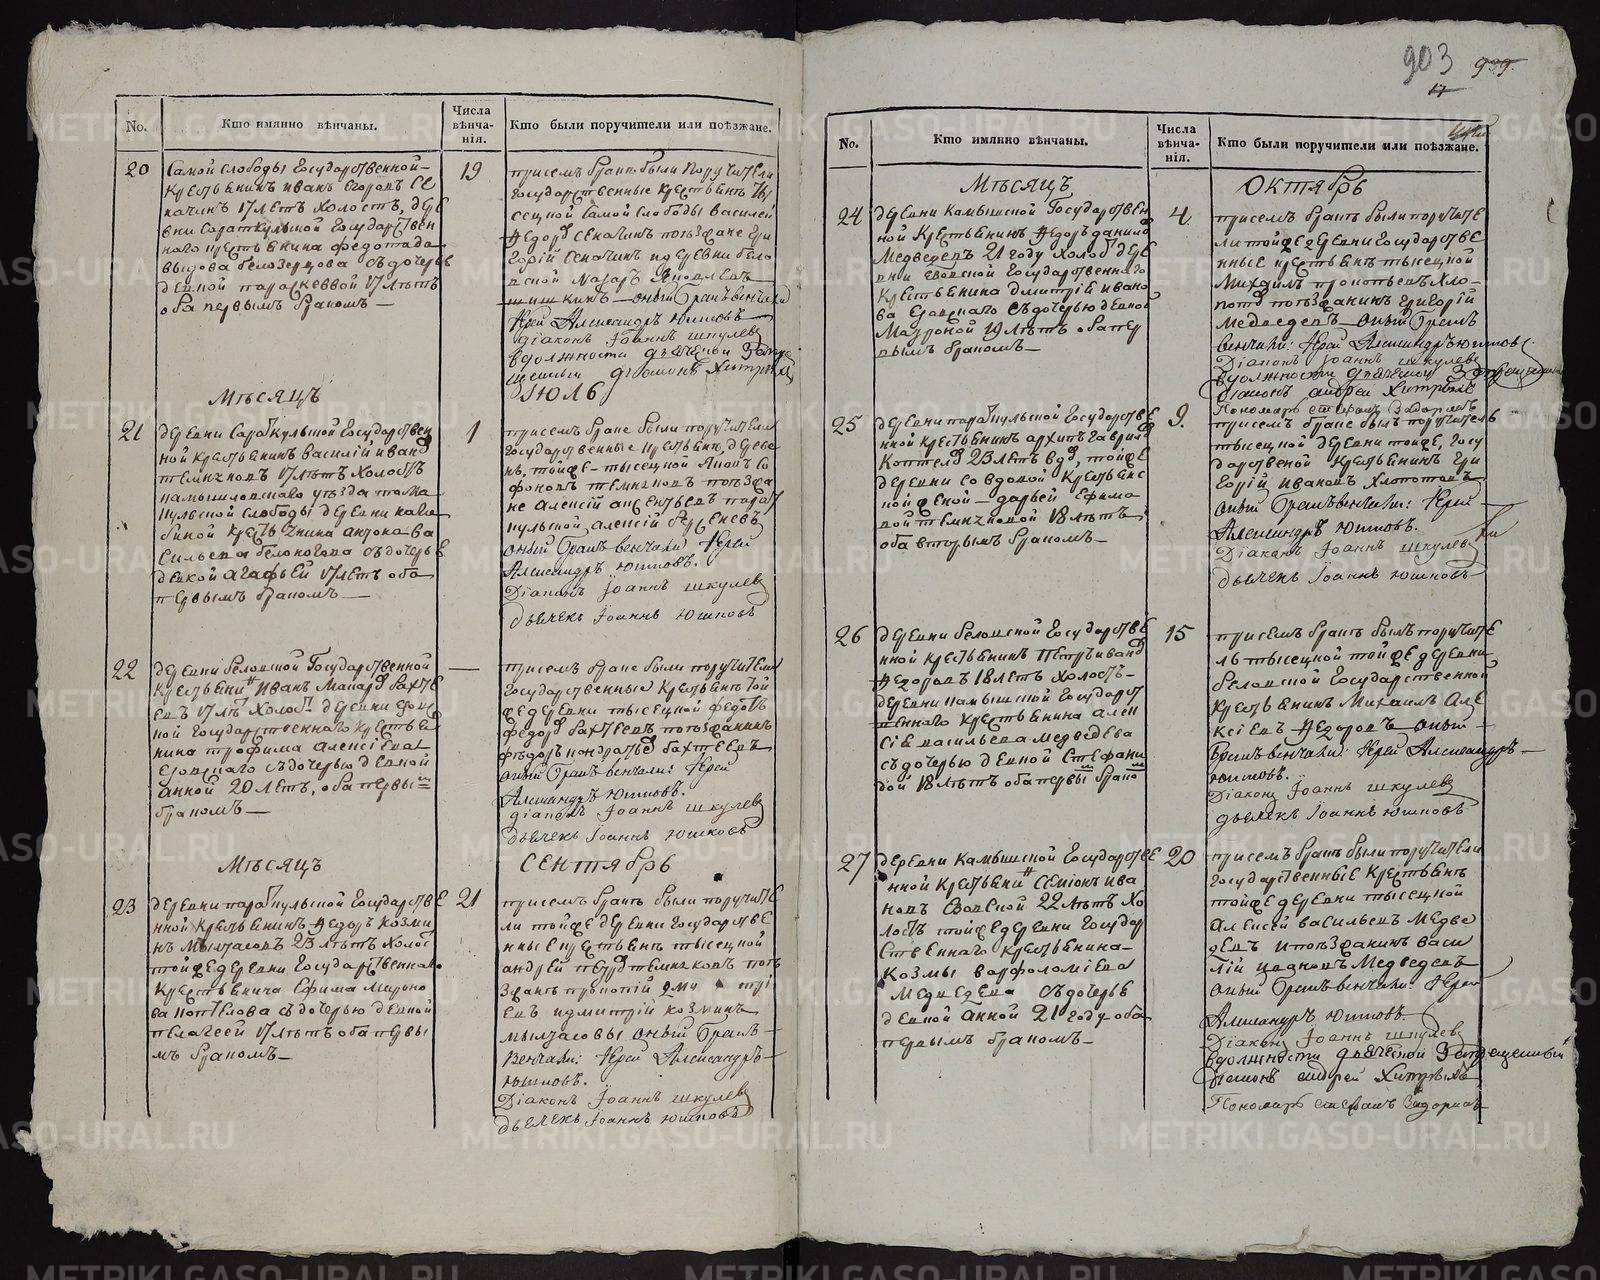 903 939.
17
No.
Кто имянно вѣнчаны.
Числа вѣнча-
нія.
Кто были поручители или поѣзжане.
20
Самой слободы Государственной
крестьянинъ иванъ Егоровъ Се
начинъ 17 летъ холостъ, дере
вни Сараткульской Государствен
наго крестьянина федота да
выдова белозерцова съ дочерью
девкой параскеввой 17 летъ
оба первымъ бракомъ —
19
при семъ бракѣ были Поручители
государственные крестьянѣ ты
сецкой самой слободы василей
федоровъ сеначинъ поезжане гри
горій сеначинъ деревни бело
оный Бракъ венчали
Іерей Александръ Юшковъ
Діаконъ Іоаннъ шкулевъ
в должности дьячка Запре
щенный диаконъ Хитровъ
Мѣсяцъ
Юль
21
деревни Сараткульской Государствен
ной крестьянинъ василій иванов
темниковъ 17 летъ холостъ
камышловскаго уезда тома
кульской слободы деревни
крестьянина антона ва
сильева белоногова съ дочерью
девкой агафьей 17 летъ оба
первымъ бракомъ —
1
при семъ браке были поручители
государственные крестьяне, дерев
ни той же тысецкой
темниковъ поезжа
не алексій
алексій
оный Бракъ венчали Іерей
Александръ Юшковъ.
Діаконъ Іоаннъ шкулевъ
дьячекъ Іоаннъ Юшковъ
22
деревни беловской Государственной
крестьянинъ Иванъ Макаровъ бахте
евъ 17 лѣ холост. деревни
ной государственнаго крестья
нина трофима алексіева
съ дочерью девкой
анной 20 летъ, оба первы
бракомъ —
—
при семъ браке были поручители
государственные крестьяне той
же деревни тысецкой федотъ
федоровъ бахтеевъ поезжанинъ
федоръ кондратьевъ бахтеевъ
оный Бракъ венчали: Іерей
Александръ Юшковъ.
Діаконъ Іоаннъ шкулевъ
дьячекъ Іоаннъ Юшковъ
Мѣсяцъ
Сентябрь
23
деревни сараткульской государстве
нной крестьянинъ федоръ козми
нъ 23 летъ холос
той же деревни Государственнаго
крестьянина Ефима мироно
ва коптелова съ дочерью девкой
пелагеей 17 летъ оба первы
мъ бракомъ —
21
при семъ бракѣ были поручите
ли той же деревни государстве
нные крестьянѣ тысецкой
андрей петровъ темниковъ поез
жанѣ прокопій
димитрій козминъ
оный Бракъ
Венчали: Іерей Александръ
Юшковъ.
Діаконъ Іоаннъ шкулевъ
дьячекъ Іоаннъ Юшковъ
No.
Кто имянно вѣнчаны.
Числа
вѣнча-
нія.
Кто были поручители или поѣзжане.
Мѣсяцъ
Октябрь
24
деревни Камышной Государствен
ной крестьянинъ федоръ данилов
Медведевъ 21 году холос дере
вни Государственнаго
крестьянина димитрія ивано
ва съ дочерью девкой
Маурой 19 летъ оба пер
вымъ бракомъ —
4
при семъ бракѣ были поручите
ли той же деревни государстве
нные крестьянѣ тысецкой
Михаилъ прокопьевъ хло
потов поезжанинъ григорій
медведевъ оный Бракъ
венчали: Іерей Александръ Юшковъ.
Діаконъ Іоаннъ шкулевъ
в должности дьячкой Запрещенный
діаконъ андрей Хитровъ
Пономарь стефанъ Задоринъ
25
деревни сараткульской Государстве
нной крестьянинъ архипъ гаврилов
Коптелов 23 летъ вдов, той же
деревни со вдовой крестьянс
кой женой дарьей Ефимо
вой темниковой 18 летъ
оба вторымъ бракомъ —
9.
при семъ браке былъ поручитель
тысецкой деревни той же, госу
дарственой крестьянинъ гри
горій ивановъ Хлопотовъ
оный Бракъ венчали: Іерей
Александръ Юшковъ.
Діаконъ Іоаннъ шкулевъ
дьячекъ Іоаннъ Юшковъ
26
деревни беловской Государстве
нной крестьянинъ Петръ иванов
федоровъ 18 летъ холостъ
деревни камышной Государст
веннаго крестьянина алек
сія васильева медведева
съ дочерью девкой Стефани
дой 18 летъ оба первы брако
15
при семъ бракѣ былъ поручите
ль тысецкой той же деревни
беловской Государственной
крестьянинъ Михаилъ Але
ксіевъ федоровъ оный
Бракъ венчали: Іерей Александръ
Юшковъ.
Діаконъ Іоаннъ шкулевъ
дьячекъ Іоаннъ Юшковъ
27
деревни Камышной государстве
нной крестьянинъ Семіонъ ива
новъ 22 летъ хо
лостъ той же деревни Государ
ственнаго крестьянина
козмы варфоломіева
Медведева съ дочерью
девкой Анной 21 году оба
первымъ бракомъ —
20
при семъ бракѣ были поручители
государственные крестьянѣ
той же деревни тысецкой
Алексей васильевъ медве
девъ и поезжанинъ васи
лій Медведевъ
оный Бракъ венчали: Іерей
Александръ Юшковъ.
Діаконъ Іоаннъ шкулевъ
в должности дьяческой Запрещенный
діаконъ андрей Хитровъ
Пономарь стефанъ Задоринъ
METRIKI.GASO-URAL.RU